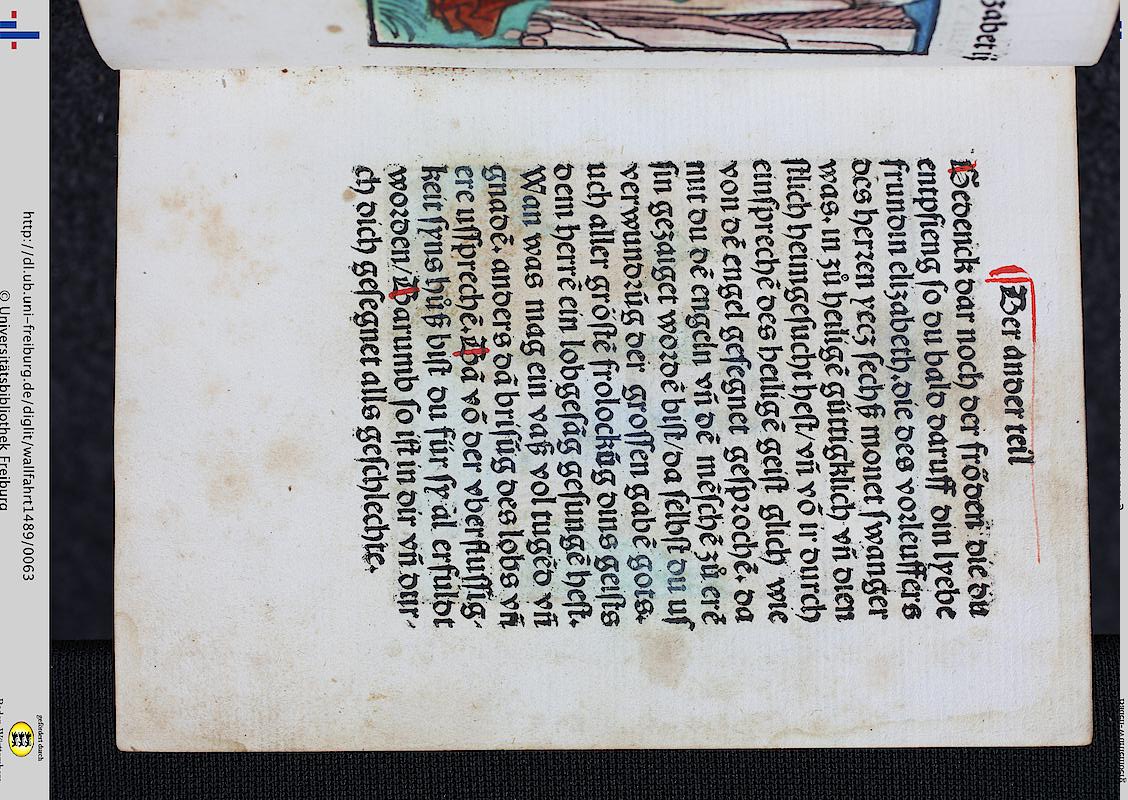 Der ander teil
Gedenck dar noch der fröden die du
entpfieng so du bald daruff din lyebe
frundin elizabeth, die des vorleuffers
des herren yecz sechß monet swanger
was. in zů heiligē gütigklich vn̄ dien
stlich heimgesucht hest/ vn̄ vō ir durch
einsprechē des heiligē geist glich wie
von dē engel gesegnet gesprochē. da
mit du dē engeln vn̄ dē mēschē zů erē
sin gezaiget wordē bist/ da selbst du us
verwundrūg der grossen gabē gots.
uch aller gröstē frolockūg dins geists
dem herrē ein lobgesāg gesungē hest.
Wan was mag ein vaß vol tugēd vn̄
gnadē. anders dā brisūg des lobs vn̄
ere ussprechē. Dā vō der vberflussig
keit syns hůß bist du für sy al erfuldt
worden/ Darumb so ist in dir vn̄ dur
ch dich gesegnet alls geschlechte.
zabeth
http://dl.ub.uni-freiburg.de/diglit/wallfahrt1489/0063
© Universitätsbibliothek Freiburg
gefördert durch